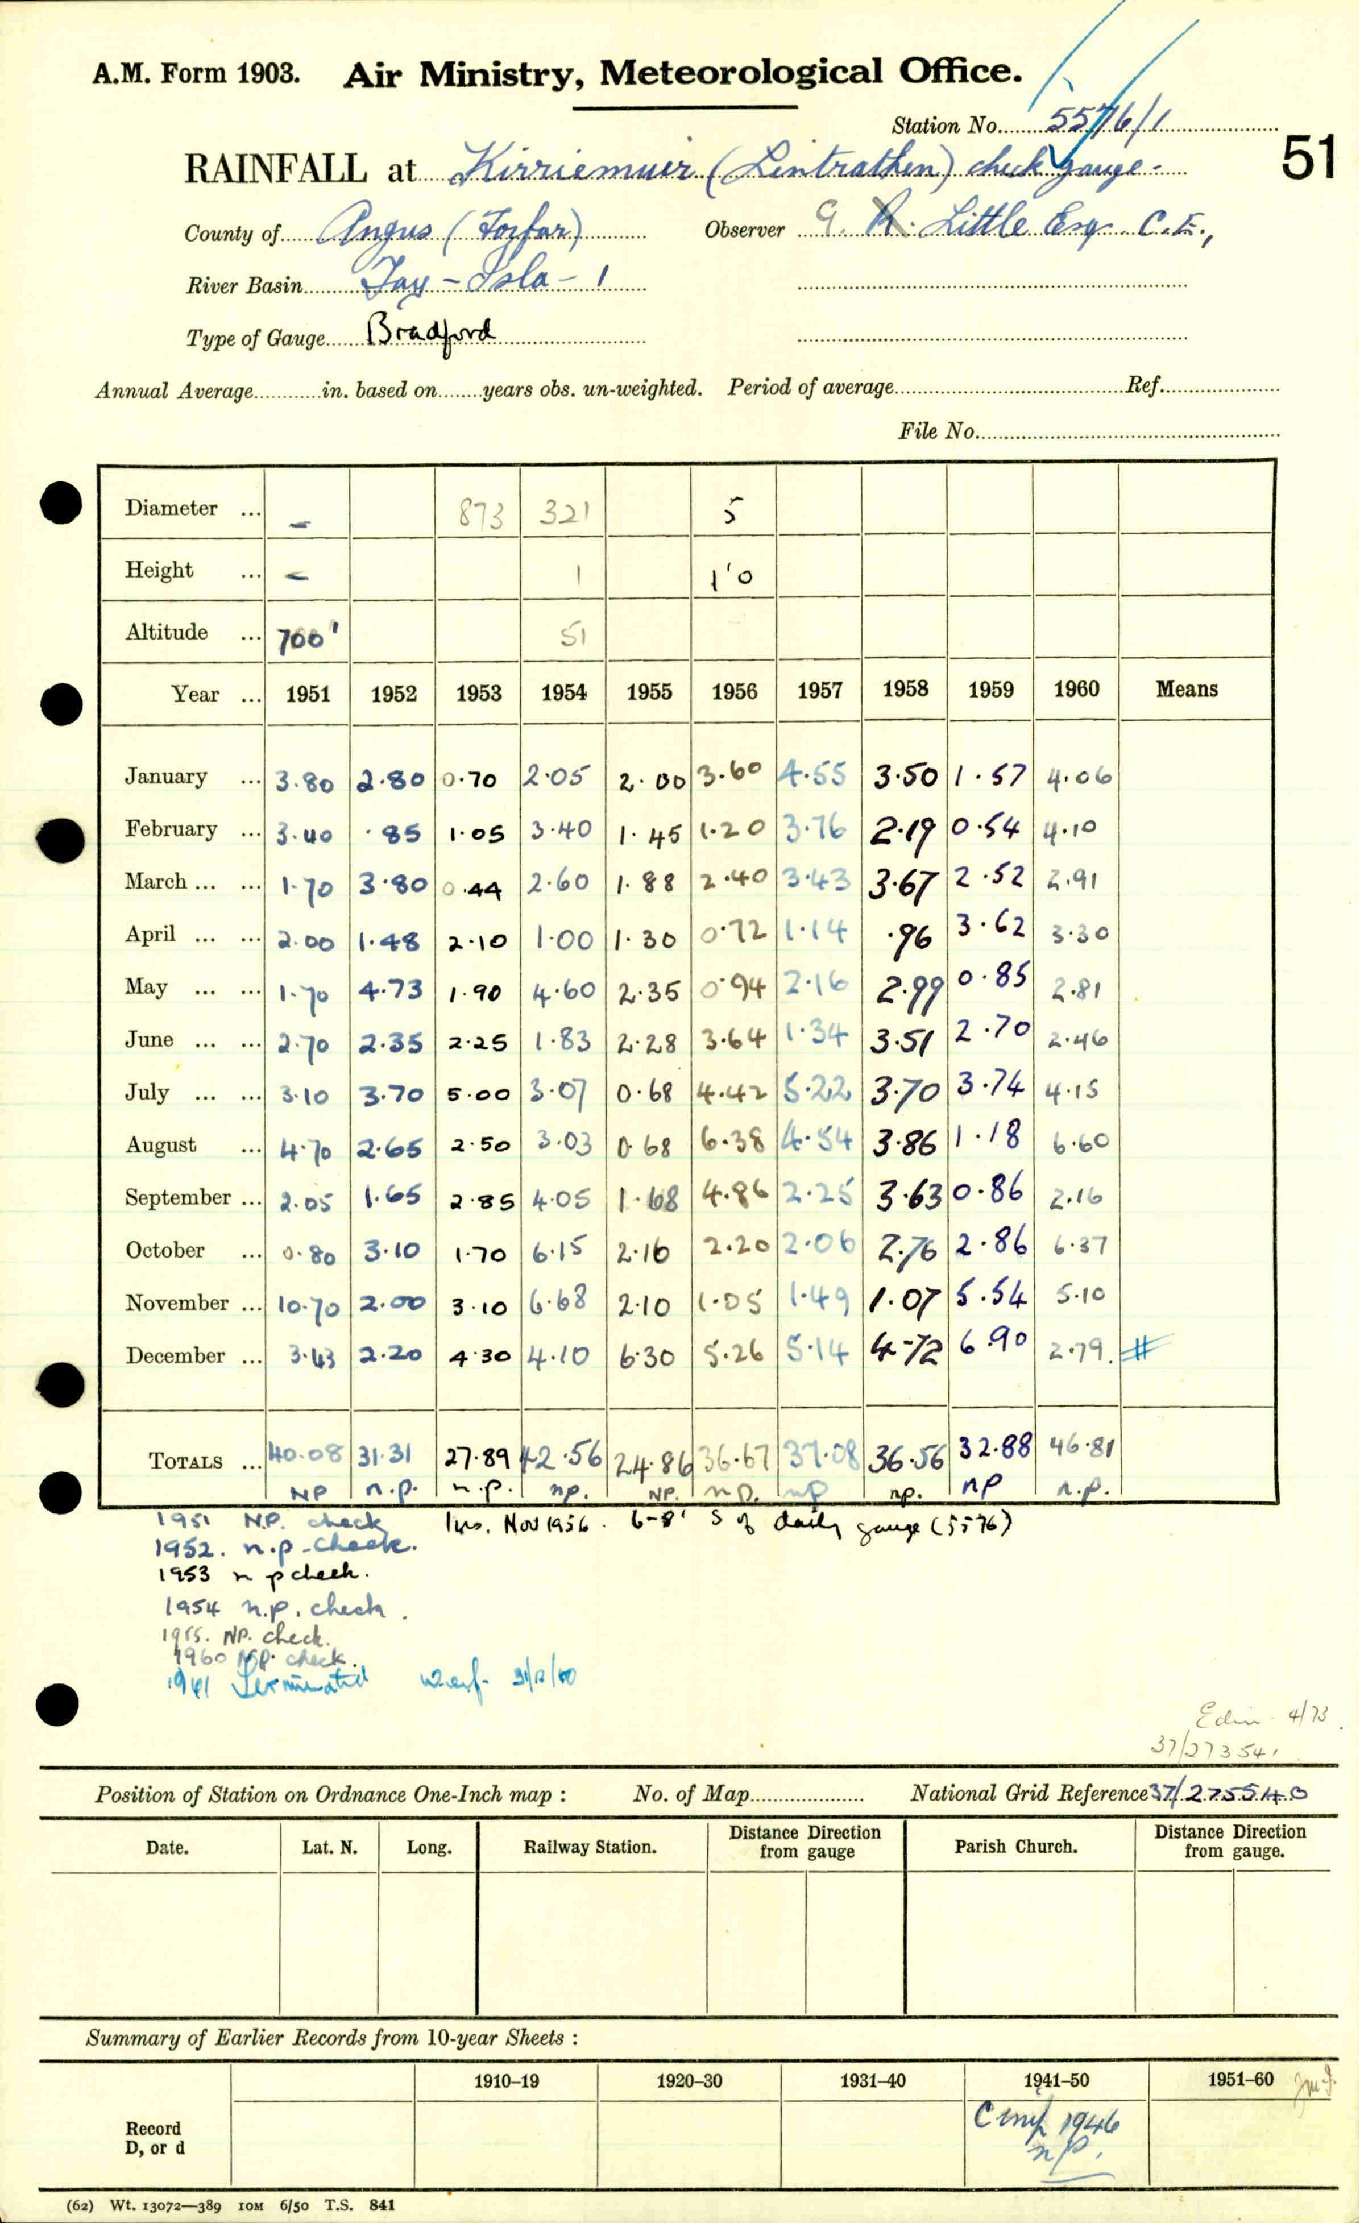 A.M. Form 1903. Air Ministry, Meteorological Office.
Station No. 5576/1
51
RAINFALL at Kirriemuir (Lintrathen) check gauge.
County of Angus (Forfar) Observer G. R. Little Esq. C.E.,
River Basin Tay - Isla - 1
Type of Gauge Bradford
Annual Average in. based on years obs. un-weighted. Period of average Ref.
File No.
Diameter ... - 873 321 5
Height ... - 1 1'0
Altitude ... 700' 51
Year ... 1951 1952 1953 1954 1955 1956 1957 1958 1959 1960 Means
January ... 3.80 2.80 0.70 2.05 2.00 3.60 4.55 3.50 1.57 4.06
February ... 3.40 .85 1.05 3.40 1.45 1.20 3.76 2.19 0.54 4.10
March ... ... 1.70 3.80 0.44 2.60 1.88 2.40 3.43 3.67 2.52 2.91
April ... ... 2.00 1.48 2.10 1.00 1.30 0.72 1.14 .96 3.62 3.30
May ... ... 1.70 4.73 1.90 4.60 2.35 0.94 2.16 2.99 0.85 2.81
June ... ... 2.70 2.35 2.25 1.83 2.28 3.64 1.34 3.51 2.70 2.46
July ... ... 3.10 3.70 5.00 3.07 0.68 4.42 5.22 3.70 3.74 4.15
August ... 4.70 2.65 2.50 3.03 0.68 6.38 4.54 3.86 1.18 6.60
September ... 2.05 1.65 2.85 4.05 1.68 4.86 2.25 3.63 0.86 2.16
October ... 0.80 3.10 1.70 6.15 2.16 2.20 2.06 2.76 2.86 6.37
November ... 10.70 2.00 3.10 6.68 2.10 1.05 1.49 1.07 5.54 5.10
December ... 3.43 2.20 4.30 4.10 6.30 5.26 5.14 4.72 6.90 2.79. #
TOTALS ... 40.08 31.31 27.89 42.56 24.86 36.67 37.08 36.56 32.88 46.81
NP n.p. n.p. np. NP. np. np np. np n.p.
1951 N.P. check Ins. Nov 1956. 6-8' S of daily gauge (5576)
1952. n.p - check.
1953 n p check.
1954 n.p. check.
1955. NP. check.
1960 NP. check.
1961 Terminated w.e.f. 31/12/60
Edin. 4/73.
37/273541
Position of Station on Ordnance One-Inch map : No. of Map National Grid Reference 37/275540
Date. Lat. N. Long. Railway Station. Distance Direction from gauge Parish Church. Distance Direction from gauge.
Summary of Earlier Records from 10-year Sheets :
1910–19 1920–30 1931–40 1941–50 1951–60
Record D, or d 1946 n.p.
(62) Wt. 13072—389 10M 6/50 T.S. 841